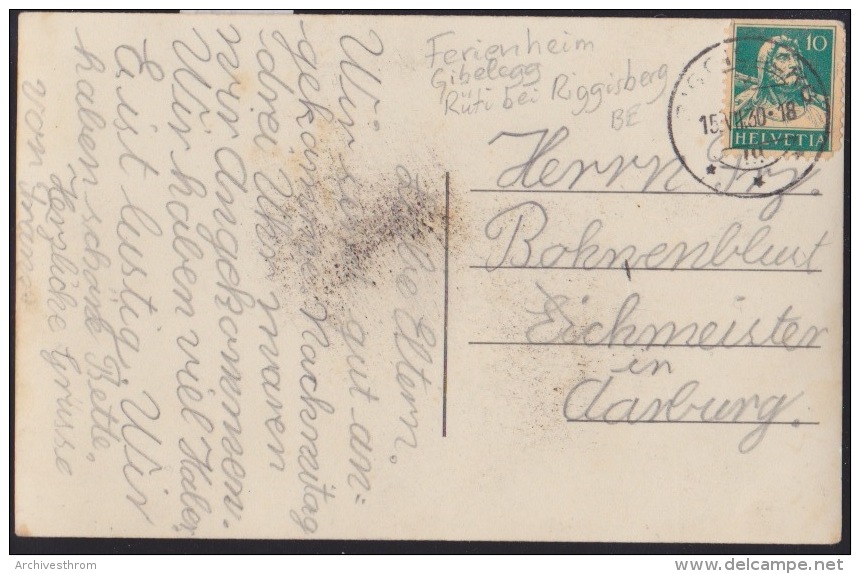 Ferienheim
Gibelegg
Rüti bei Riggisberg
BE
10
HELVETIA
15.VII.30.18
Herrn
Bohnenblust
Eichmeister
in
Aarburg.
Liebe Eltern.
Wir sind gut an=
gekommen Nachmitag
drei Uhr waren
wir angekommen.
Wir haben viel
Es ist lustig. Wir
haben schöne Bette.
Herzliche Grüsse
von Franz
Archivesthrom
delcampe.net